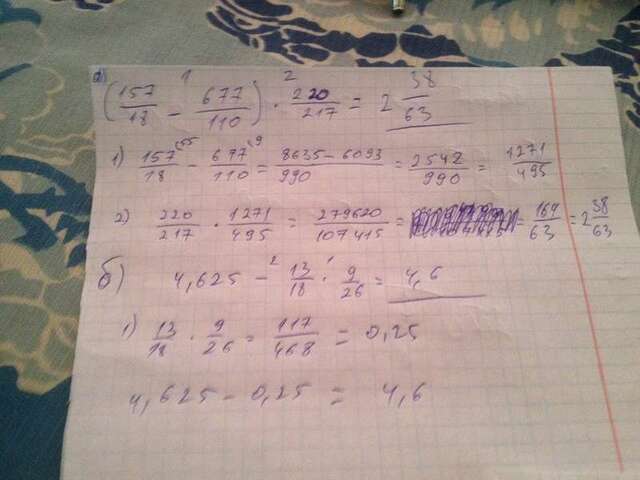 а) (157/18 - 677/110) · 220/217 = 2 38/63
1) 157/18 - 677/110 = 8635-6093/990 = 2542/990 = 1271/495
2) 220/217 · 1271/495 = 279620/107415 = = 164/63 = 2 38/63
б) 4,625 - 13/18 · 9/26 = 4,6
1) 13/18 · 9/26 = 117/468 = 0,25
4,625 - 0,25 = 4,6